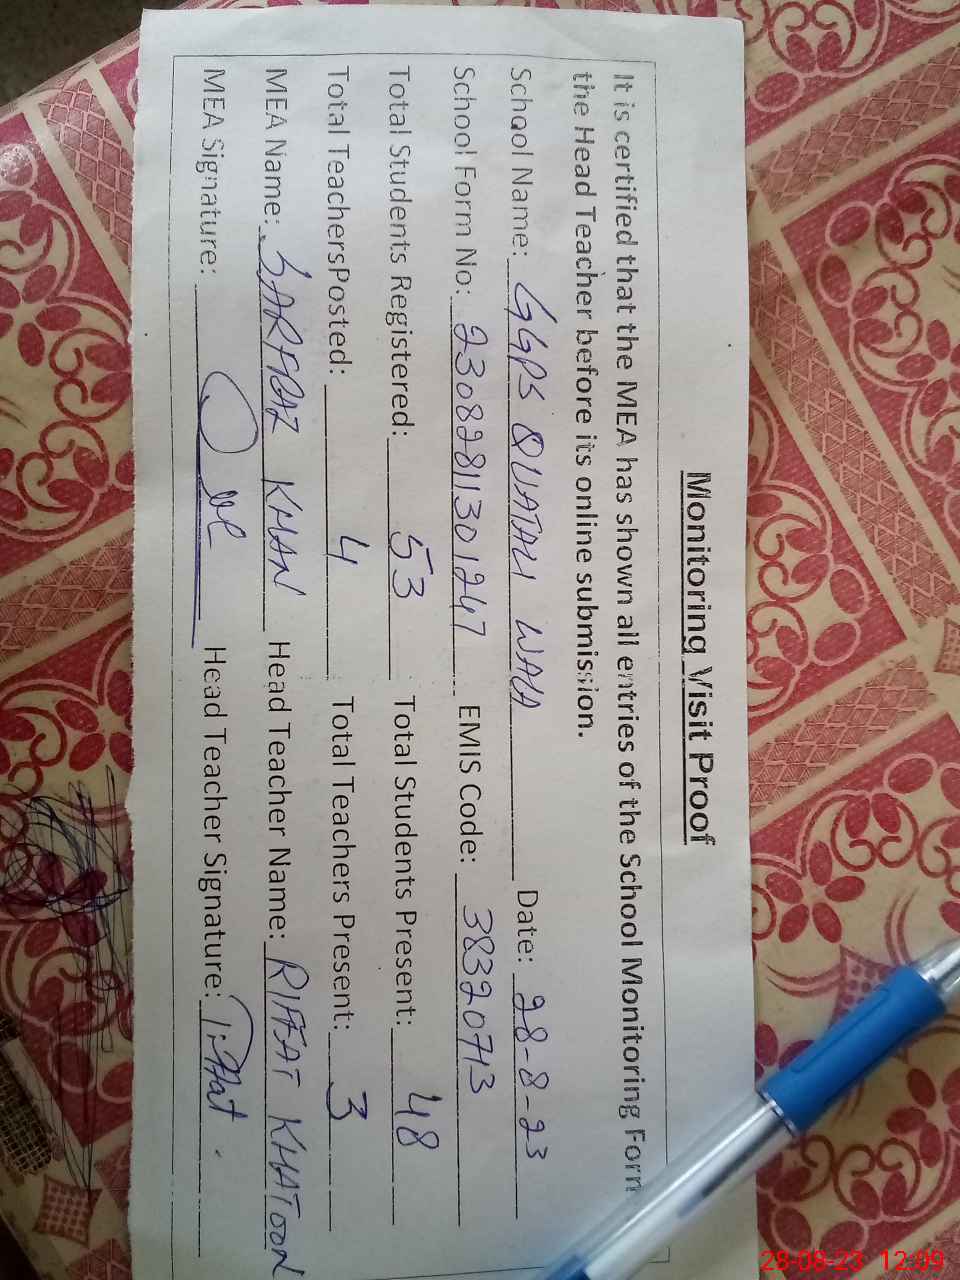 Monitoring Visit Proof
It is certified that the MEA has shown all entries of the School Monitoring Form
the Head Teacher before its online submission.
School Name: GGPS QUATALI WALA Date: 28-8-23
School Form No: 23082811301247 EMIS Code: 38320713
Total Students Registered: 53 Total Students Present: 48
Total TeachersPosted: 4 Total Teachers Present: 3
MEA Name: SARFRAZ KHAN Head Teacher Name: RIFFAT KHATOON
MEA Signature: Head Teacher Signature: Riffat
28-08-23 12:09